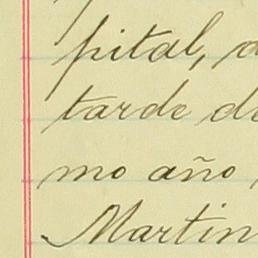 pital, a
tarde de
mo año
Martin